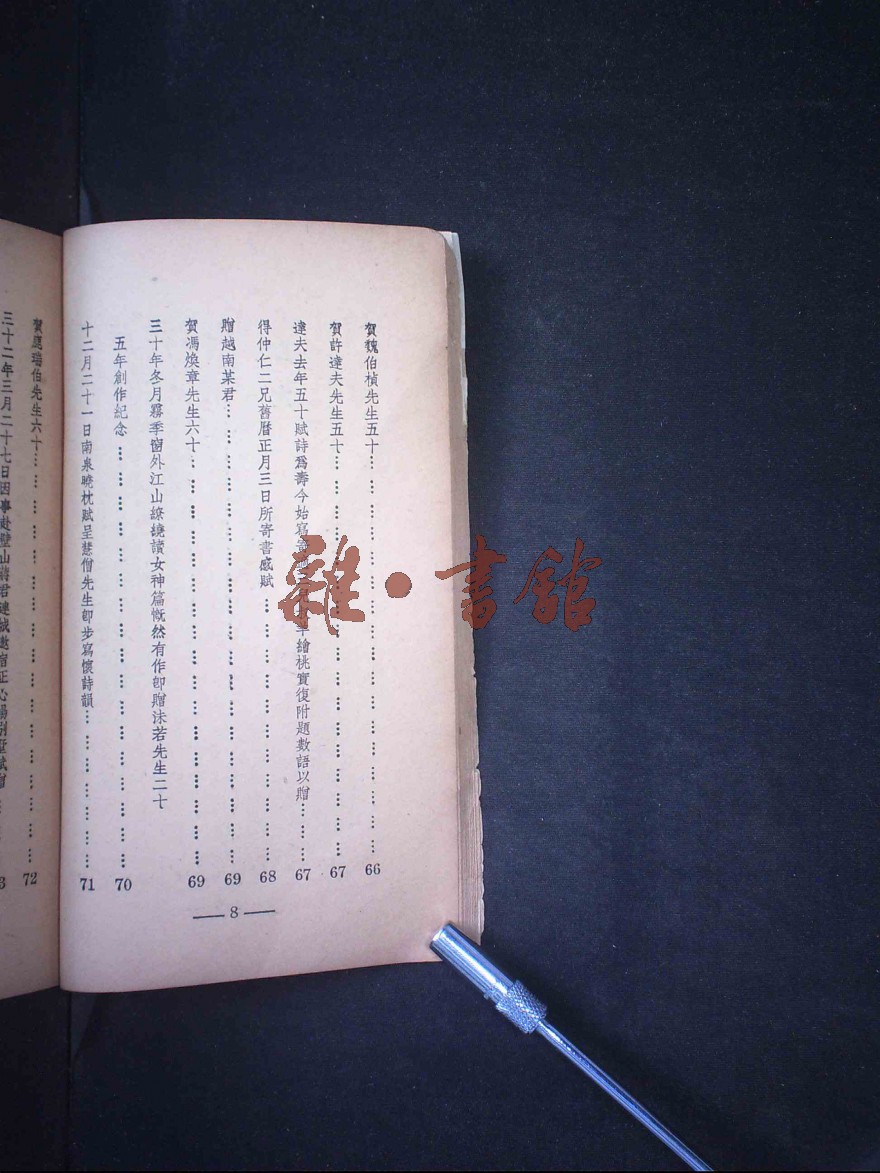 賀魏伯楨先生五十……………………66
賀許達夫先生五十……………………67
達夫去年五十賦詩爲壽今始寫 繪桃實復附題數語以贈………67
得仲仁二兄舊曆正月三日所寄書感賦………………68
贈越南某君……………………69
賀馮煥章先生六十……………………69
三十年冬月霧季窗外江山繚繞讀女神篇慨然有作卽贈沫若先生二十
五年創作紀念……………………70
十二月二十一日南泉曉枕賦呈慧僧先生卽步寫懷詩韻……………71
— 8 —
賀應瑞伯先生六十……………………72
三十二年三月二十七日因事赴璧山蔣君建城邀宿正心 賦贈……3
雜·書館